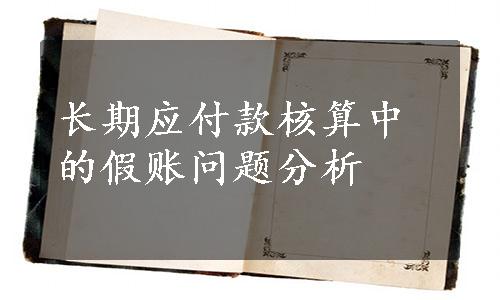 长期应付款核算中
的假账问题分析